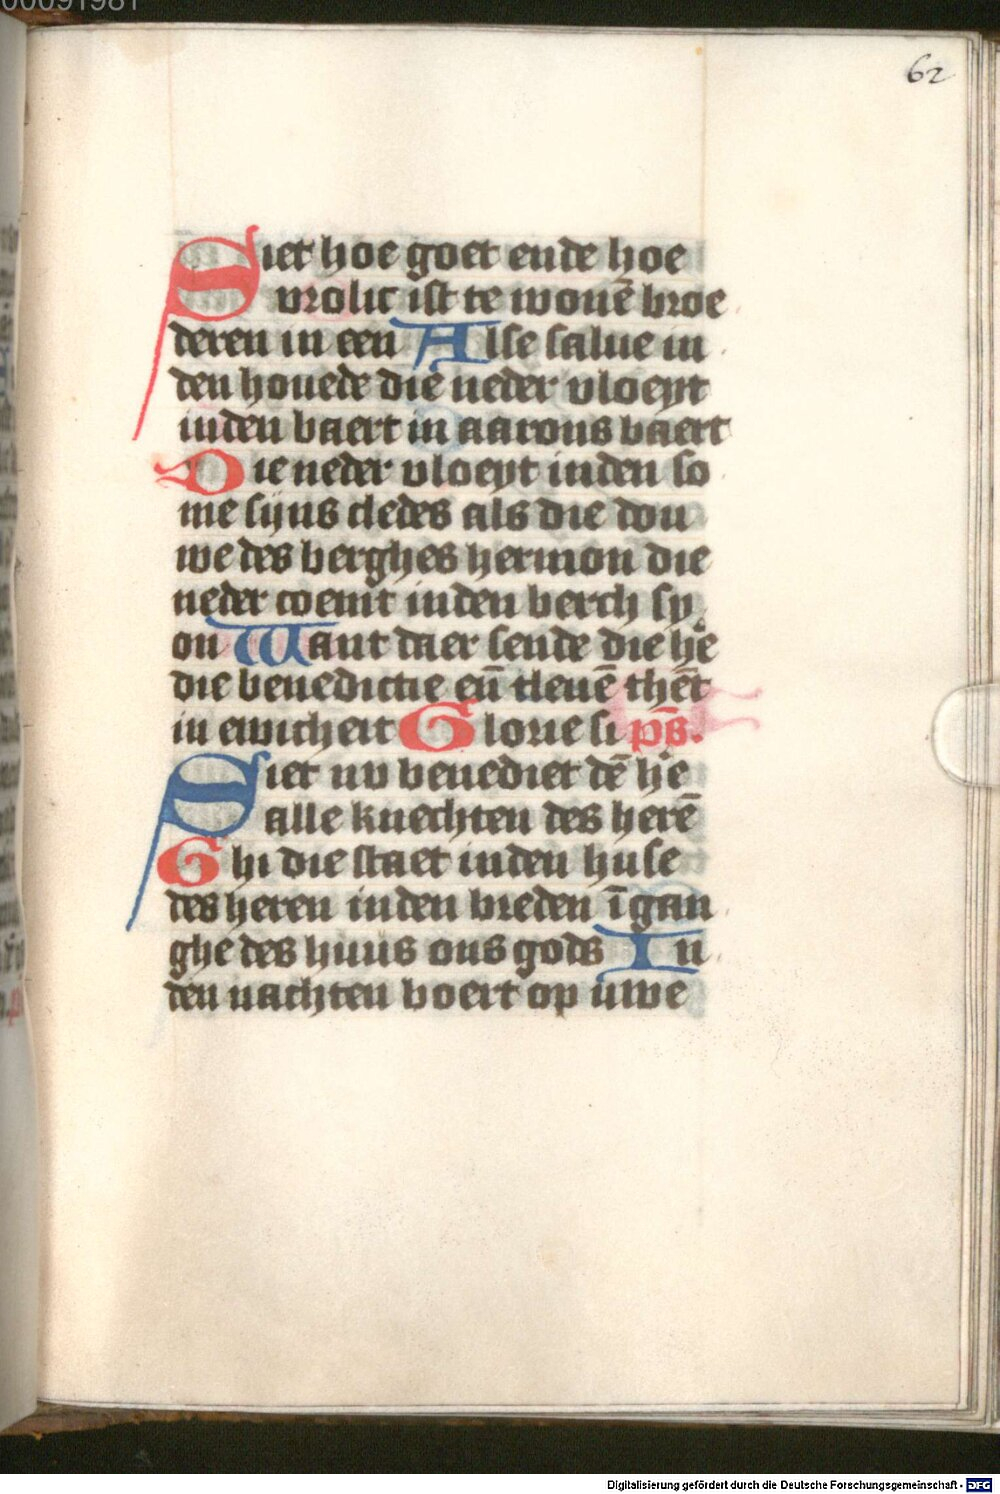 00091981
62
Siet hoe goet ende hoe
vrolic ist te wonē broe
deren in een Alse salue in
den houede die neder vloeyt
inden baert in aarons baert
Die neder vloeyt inden so
me sijns cledes als die dou
we des berghes hermon die
neder coemt inden berch sy
on Want daer sende die he
die benedictie eñ tleuē thēt
in ewicheit Glorie si ps̄.
Siet nv benediet dē he
alle knechten des herē
Ghi die staet inden huse
des heren inden vreden īgan
ghe des huus ons gods In
den nachten boert op uwe
Digitalisierung gefördert durch die Deutsche Forschungsgemeinschaft - DFG